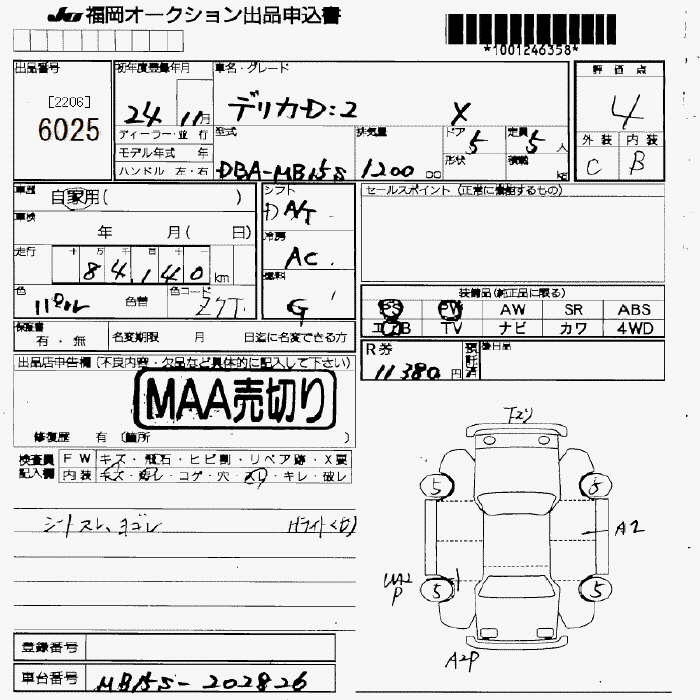 JU 福岡オークション出品申込書
*1001246358*
出品番号
[2206]
6025
初年度登録年月
24 11月
ディーラー・並 行
モデル年式 年
ハンドル 左・右
車名・グレード
デリカD:2 X
型式
DBA-MB15S
排気量
1200 CC
ドア
5
形状
定員
5人
積載
kg
評価点
4
外装 内装
C B
車歴
自家用( )
車検
年 月( 日)
走行
十 万 千 百 十 一
84,140 km
色
色替
色コード
ZJT
シフト
D A/T
冷房
AC
燃料
G
セールスポイント(正常に機能するもの)
装備品(純正品に限る)
PS PW AW SR ABS
エアB TV ナビ カワ 4WD
保証書
有・無
名変期限 月 日迄に名変できる方
R券
11380円
預託済
後日品
出品店申告欄(不良内容・欠品など具体的に記入して下さい)
MAA売切り
修復歴 有 〔箇所 〕
検査員記入欄
FW キズ・飛石・ヒビ割・リペア跡・X要
内装 キズ・汚レ・コゲ・穴・スレ・キレ・破レ
シートスレ、ヨゴレ
ライトくもり
下スリ
5 6
A2
UA2
P
5 5
A2P
登録番号
車台番号
MB15S-202826